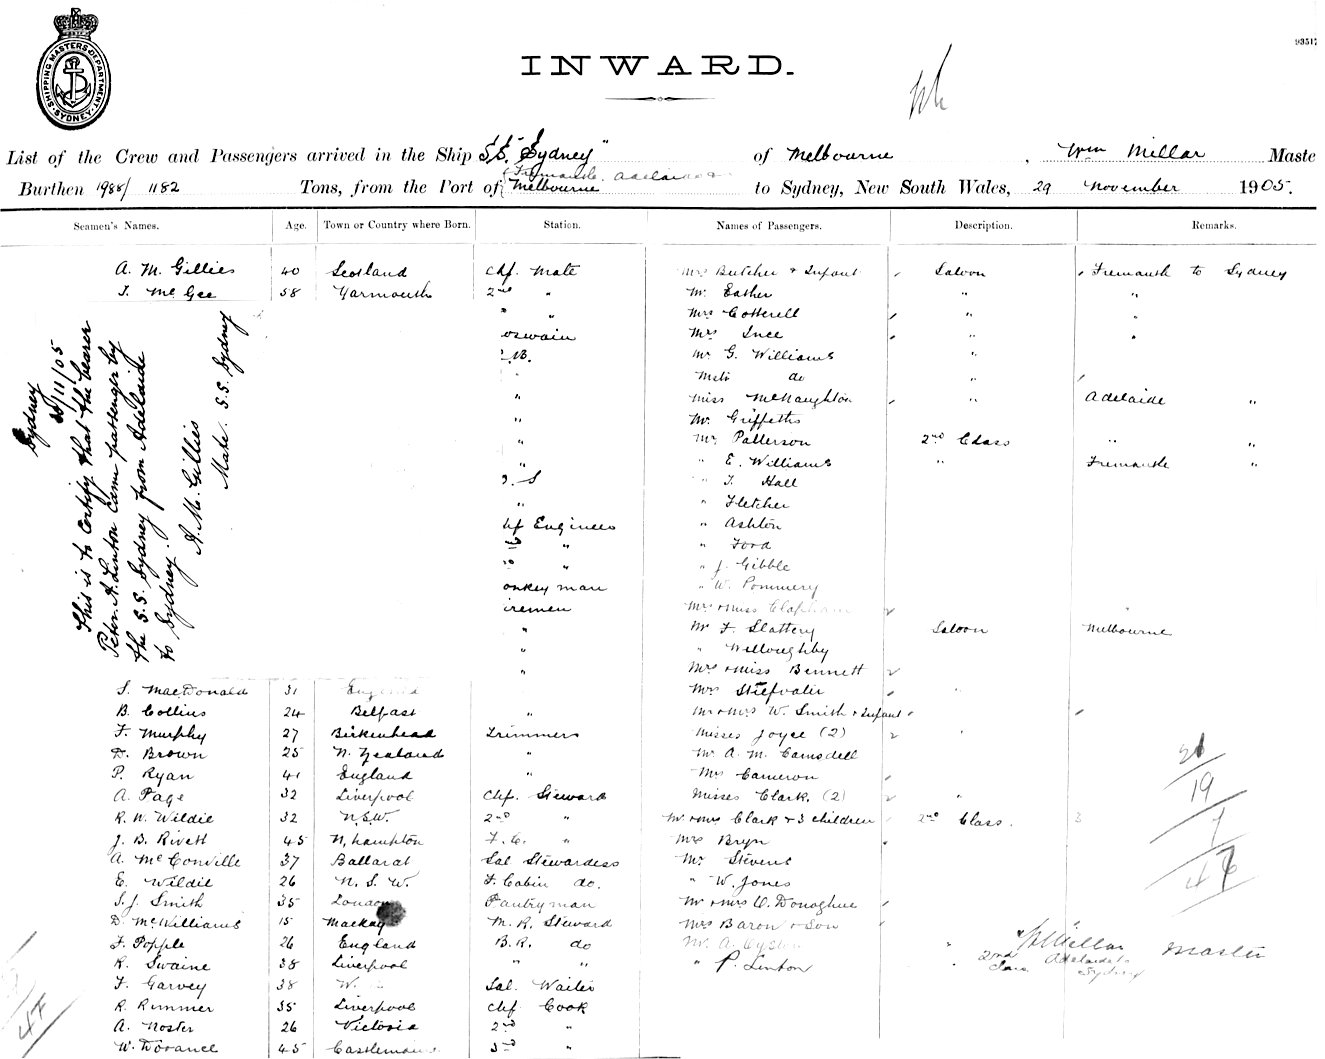 SHIPPING MASTERS DEPARTMENT SYDNEY
INWARD.
List of the Crew and Passengers arrived in the Ship S.S. "Sydney" of Melbourne, Wm Millar Maste
Burthen 1988/1182 Tons, from the Port of Fremantle, Adelaide & Melbourne to Sydney, New South Wales, 29 November 1905.
Seamen's Names. Age. Town or Country where Born. Station. Names of Passengers. Description. Remarks.
A. M. Gillies 40 Scotland Chf. Mate Mrs Butcher & Infant Saloon Fremantle to Sydney
J. McGee 58 Yarmouth 2nd " Mr Eather " "
" " Mrs Cotterell " "
oswain Mrs Ince " "
.B. Mr G. Williams "
" do
" Miss McNaughton " Adelaide "
" Mr Griffiths
" Mr Patterson 2nd Class " "
" " E. Williams " Fremantle "
. S " J. Hall
" " Fletcher
hf Engineer " Ashton
nd " " Ford
" " J. Gibble
onkeyman " W. Pommery
iremen Mrs & Miss Clapham
" Mr F. Slattery Saloon Melbourne
" " Willoughby
" Mrs & Miss Bennett
Sydney
/11/05
This is to Certify that the bearer
Peter A. Linton Came passenger by
the S.S. Sydney from Adelaide
to Sydney.
A. M. Gillies
Mate. S.S. Sydney
S. MacDonald 31 England Mrs Stiefvater "
B. Collins 24 Belfast " Mr & Mrs W. Smith & Infant
F. Murphy 27 Birkenhead Trimmers Misses Joyce (2) "
D. Brown 25 N. Zealand " Mr A. M. Camsdell
P. Ryan 41 England " Mrs Cameron
A. Page 32 Liverpool Chf. Steward Misses Clark. (2) "
R. W. Wildie 32 N.S.W. 2nd " Mr & Mrs Clark & 3 children 2nd Class. 3
J. B. Rivett 45 N, hampton F. C. " Mrs Bryn
A. McConville 37 Ballarat Sal Stewardess Mr Stevens
E. Wildie 26 N. S. W. F. Cabin do. " W. Jones
S. J. Smith 35 London Pantryman Mr & Mrs O. Donoghue
D. McWilliams 15 Mackay M. R. Steward Mrs Baron & Son
F. Popple 26 England B. R. do Mr. A. "
R. Swaine 38 Liverpool " " " P. Linton 2nd Adelaide to Sydney
Millar Master
F. Garvey 38 W. Sal. Waiter
R. Rimmer 35 Liverpool Chf Cook
A. Noster 26 Victoria 2nd "
W. Dorance 45 Castlemaine 3rd "
19
1